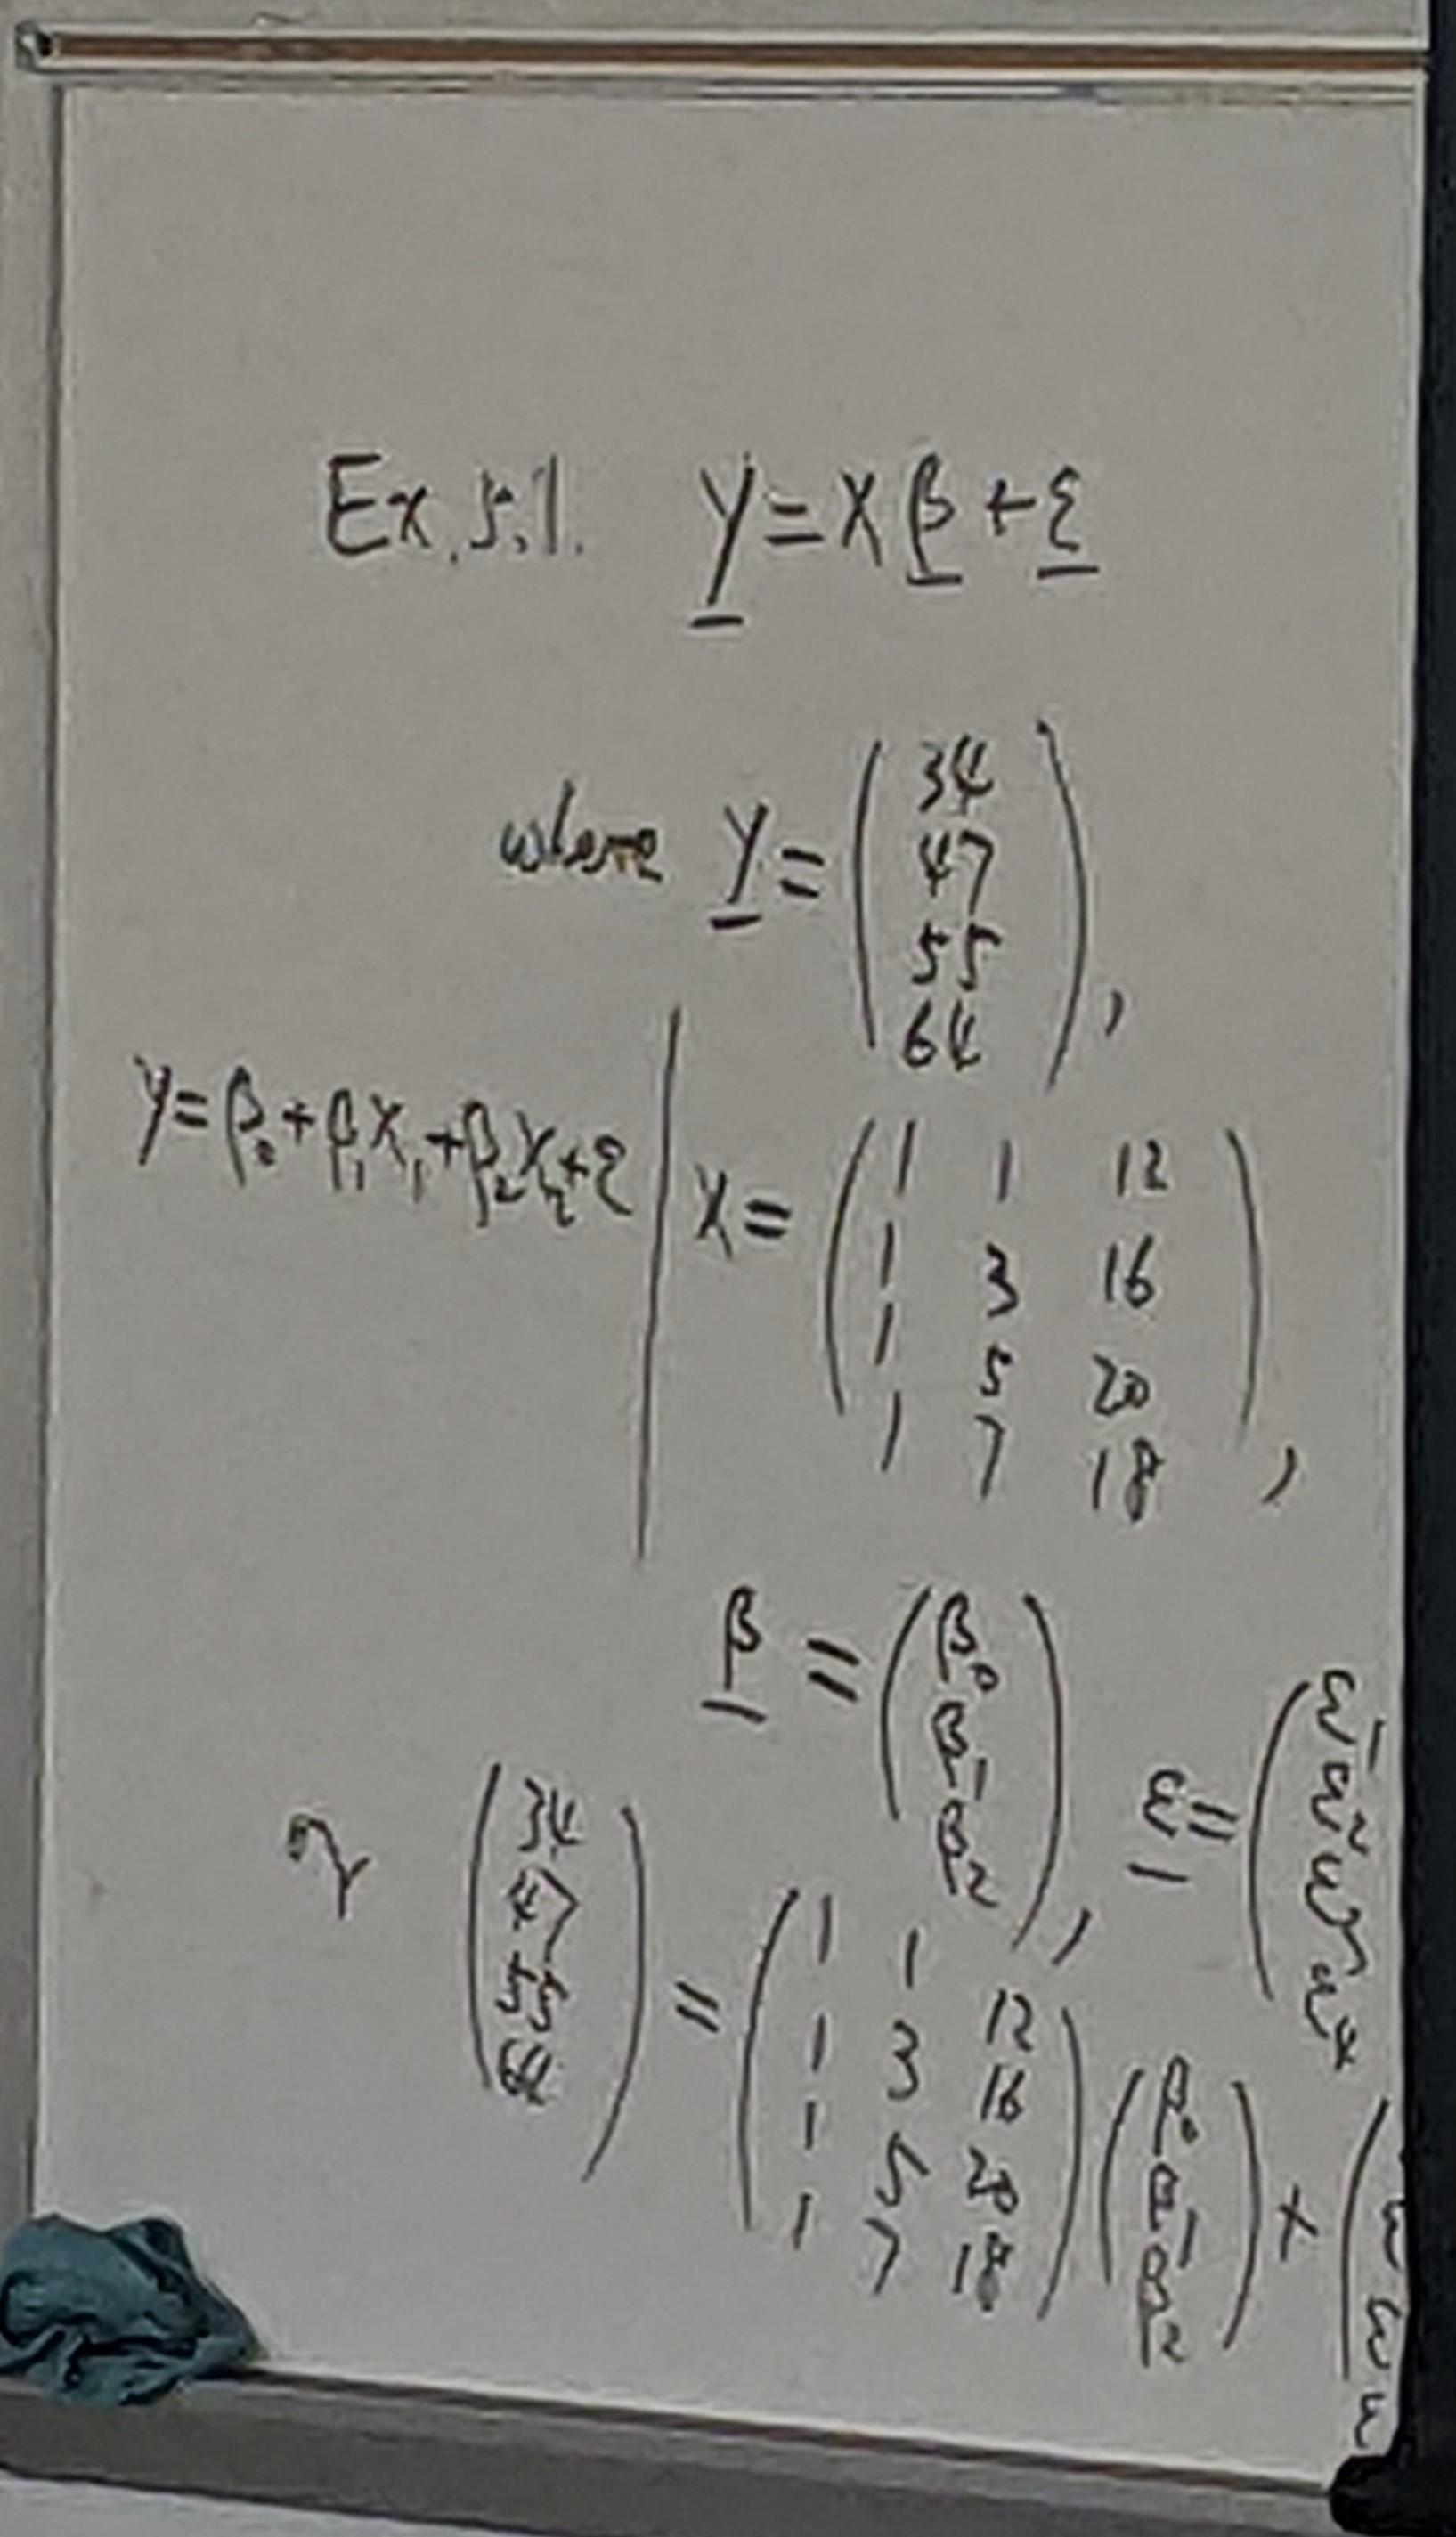 Ex. 5.1. y = Xβ + ε
where y = (34
47
55
64),
y = β₀ + β₁X₁ + β₂X₂ + ε | X = (1 1 12
1 3 16
1 5 20
1 7 18),
β = (β₀
β₁
β₂), ε = (ε₁
ε₂
ε₃
ε₄)
(34
47
55
64) = (1 1 12
1 3 16
1 5 20
1 7 18) (β₀
β₁
β₂) + (ε
ε
ε